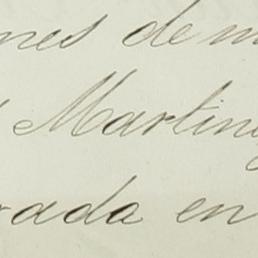 nes de m
Martin
rada en